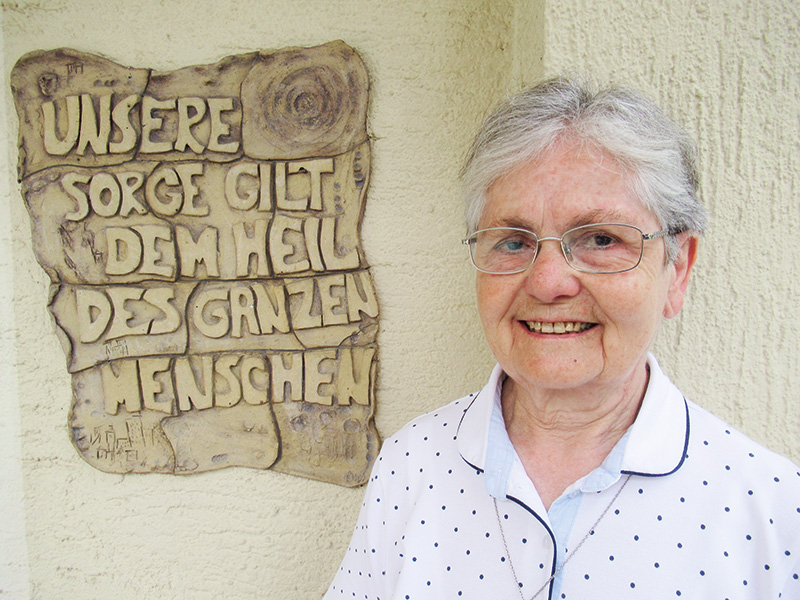 UNSERE
SORGE GILT
DEM HEIL
DES GANZEN
MENSCHEN